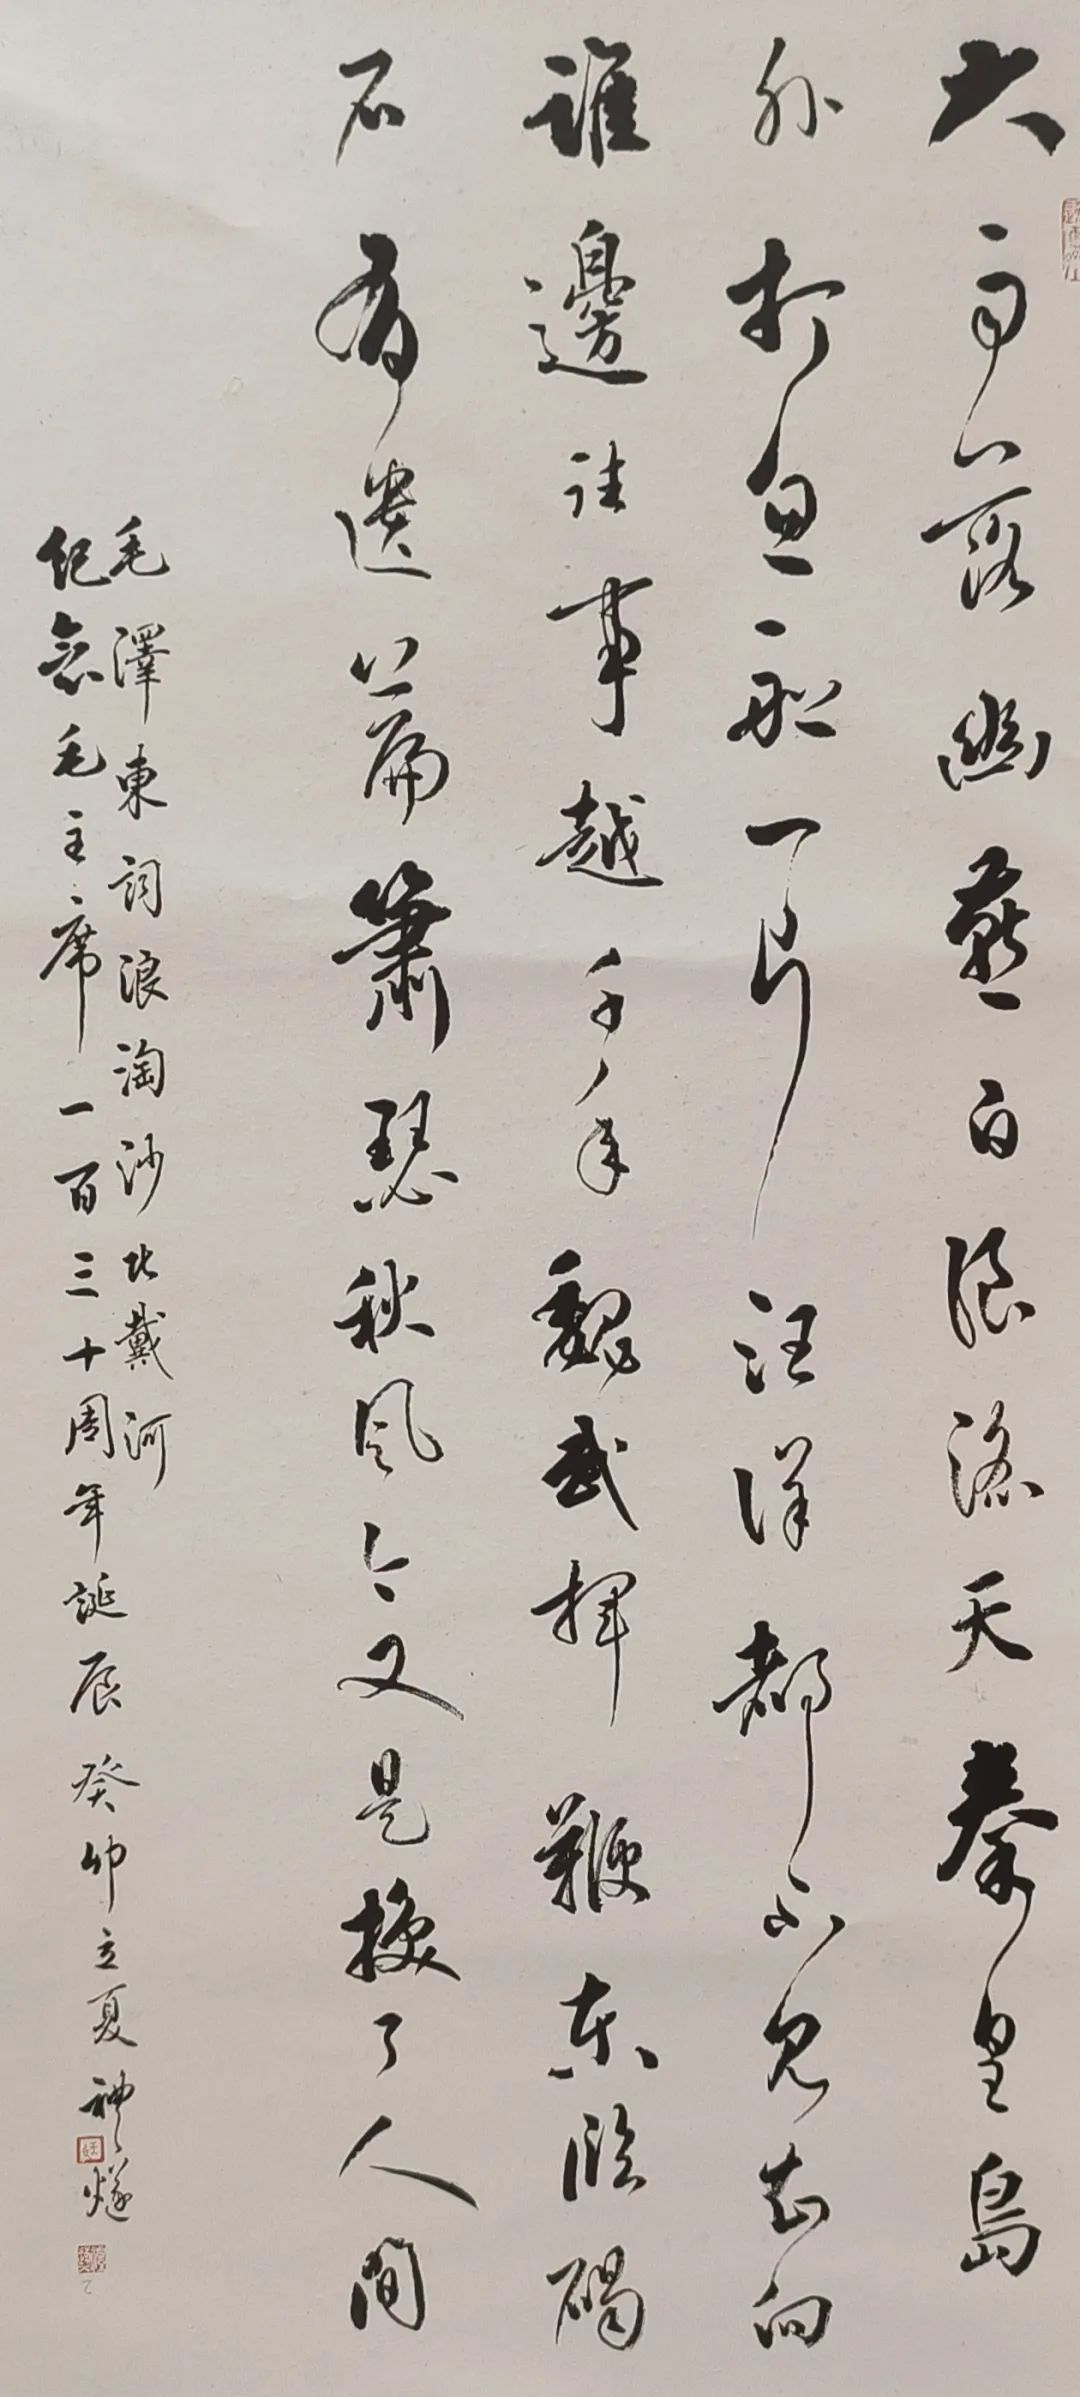 大雨落幽燕白浪滔天秦皇島
外打魚船一片汪洋都不見知向
誰邊往事越千年魏武揮鞭東臨碣
石有遺篇簫瑟秋風今又是換了人間
毛澤東詞浪淘沙北戴河
紀念毛主席一百三十周年誕辰癸卯立夏